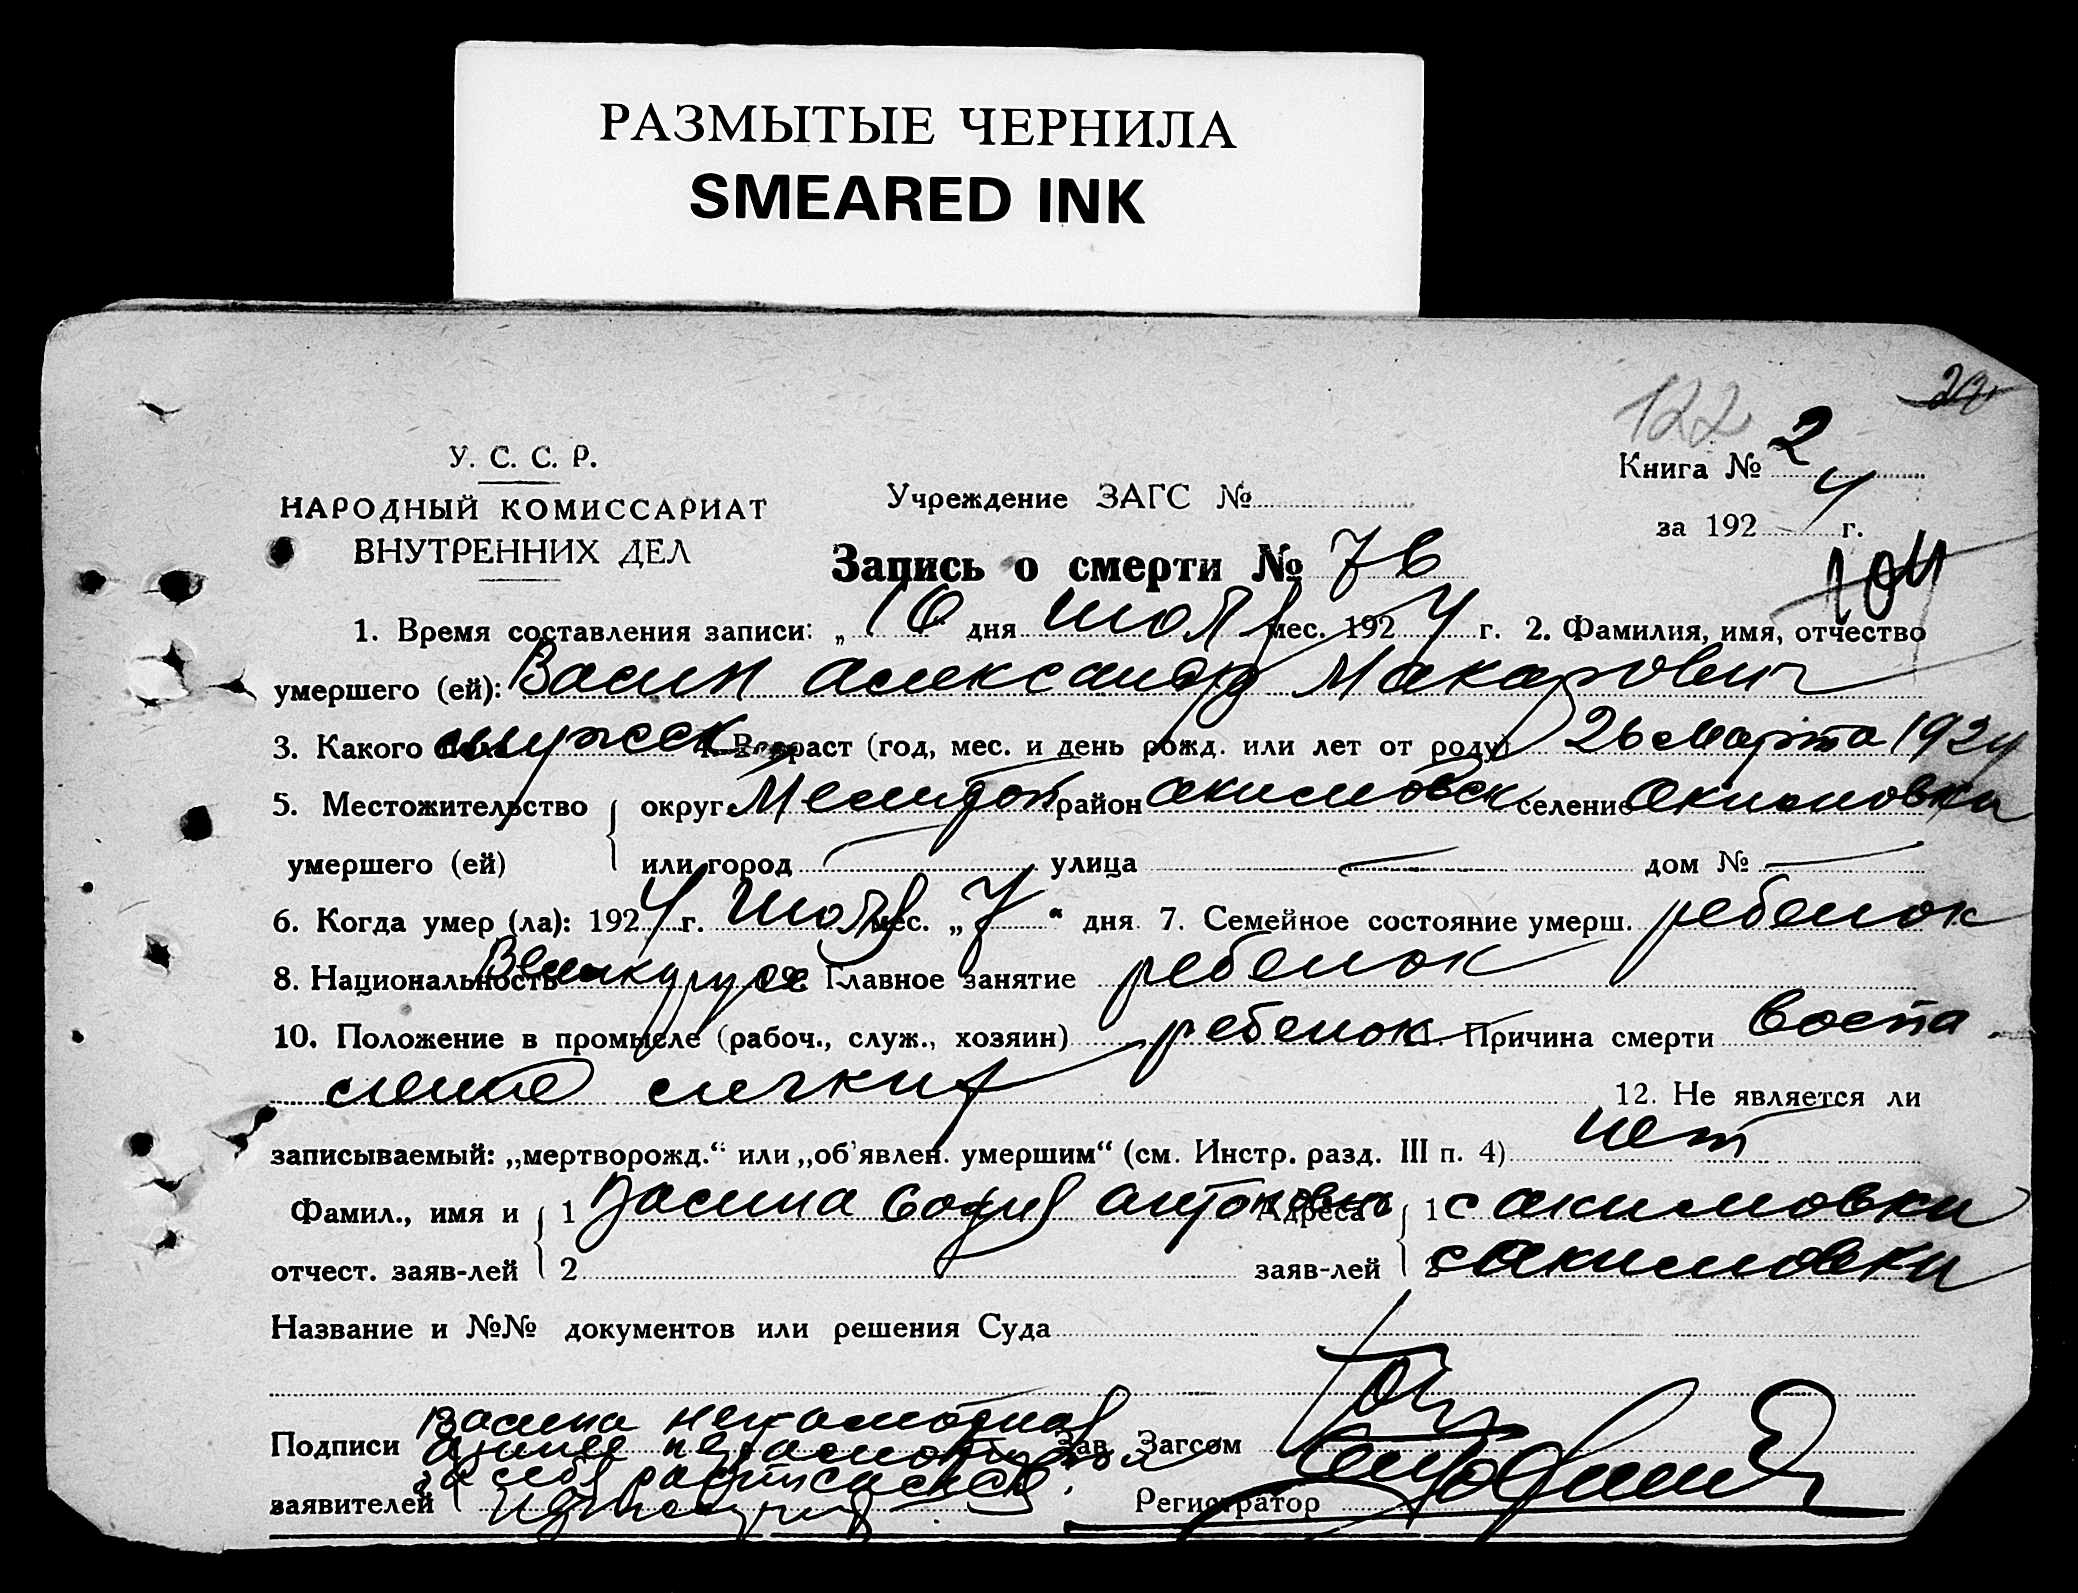 РАЗМЫТЫЕ ЧЕРНИЛА
SMEARED INK
122
У. С. С. Р.
Книга № 2
НАРОДНЫЙ КОМИССАРИАТ
Учреждение ЗАГС №
за 1924 г.
ВНУТРЕННИХ ДЕЛ
Запись о смерти № 76
104
1. Время составления записи: „10" дня июля мес. 1924 г. 2. Фамилия, имя, отчество
умершего (ей): Васин Александр Макарович
3. Какого пола мужск 4. Возраст (год, мес. и день рожд. или лет от роду) 26 марта 1924
5. Местожительство округ Мелитоп район Акимовск селение Акимовка
умершего (ей) или город — улица — дом № —
6. Когда умер (ла): 1924 г. июля мес. „7" дня. 7. Семейное состояние умерш. ребенок
8. Национальность Великорус 9. Главное занятие ребенок
10. Положение в промысле (рабоч., служ., хозяин) ребенок 11. Причина смерти воспа
ление легких 12. Не является ли
записываемый: „мертворожд." или „об'явлен. умершим" (см. Инстр. разд. III п. 4) нет
Фамил., имя и 1 Васина Софья Антоновна Адреса 1 с Акимовки
отчест. заяв-лей 2 заяв-лей 2 с Акимовки
Название и №№ документов или решения Суда
Васина неграмотная
Подписи Зав. Загсом
расписался
заявителей Регистратор